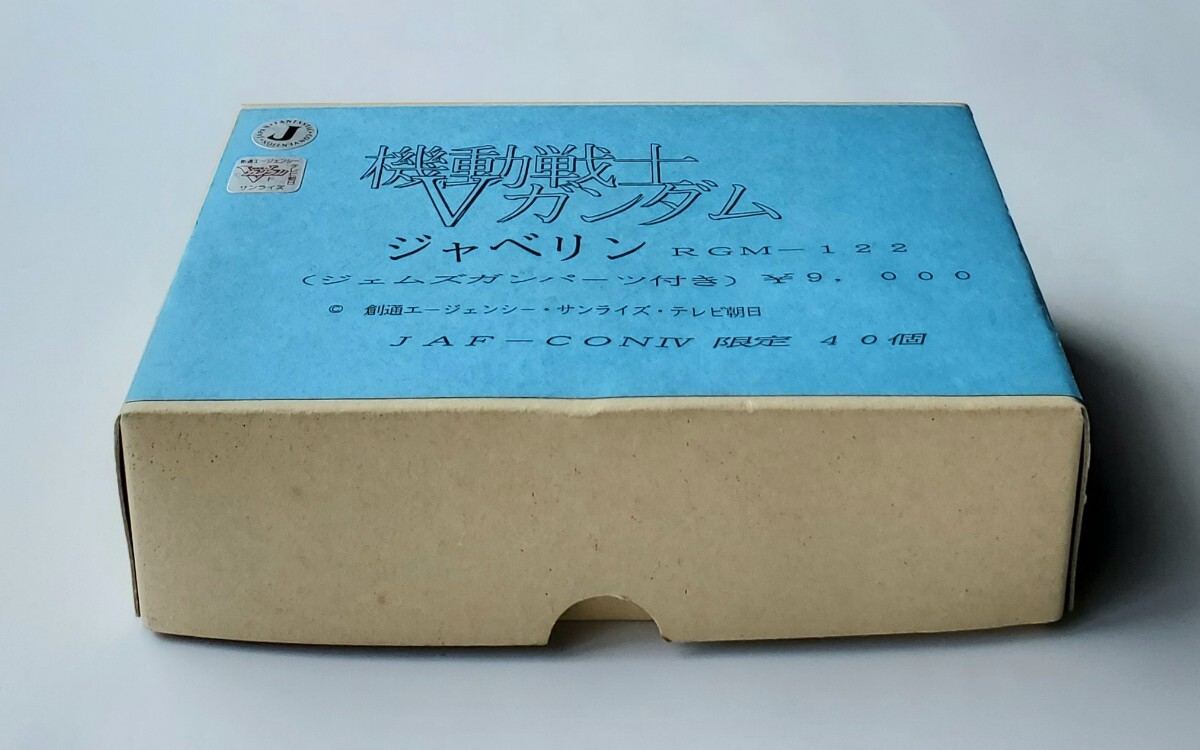 J
創通エージェンシー
テレビ朝日
サンライズ
機動戦士
Vガンダム
ジャベリン RGM－122
(ジェムズガンパーツ付き) ¥9，000
© 創通エージェンシー・サンライズ・テレビ朝日
JAF－CONⅣ 限定 40個